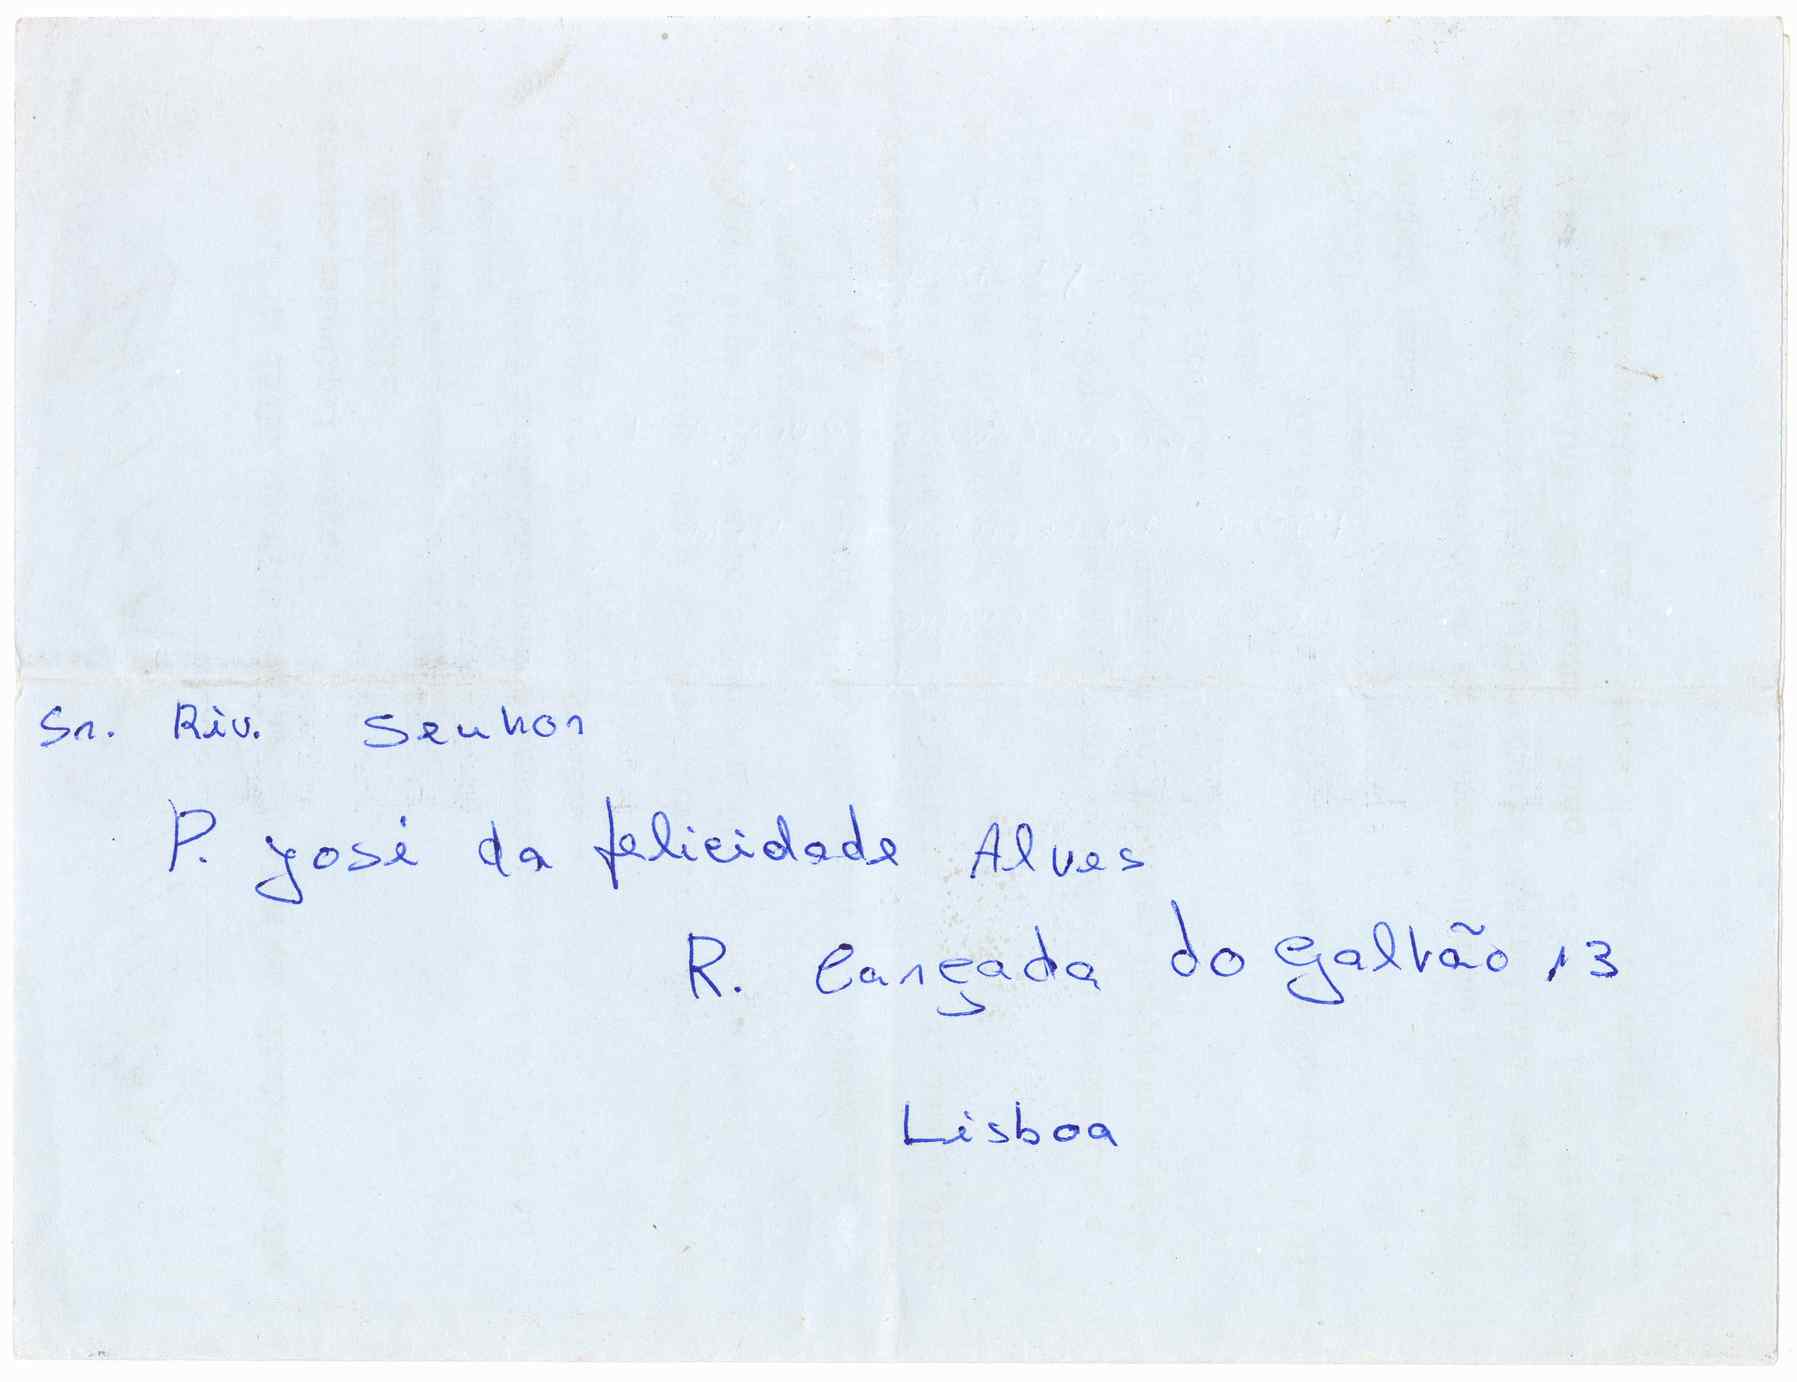 Sr. Riv. Senhor
P. José da felicidade Alves
R. Carçada do Galvão, 13
Lisboa